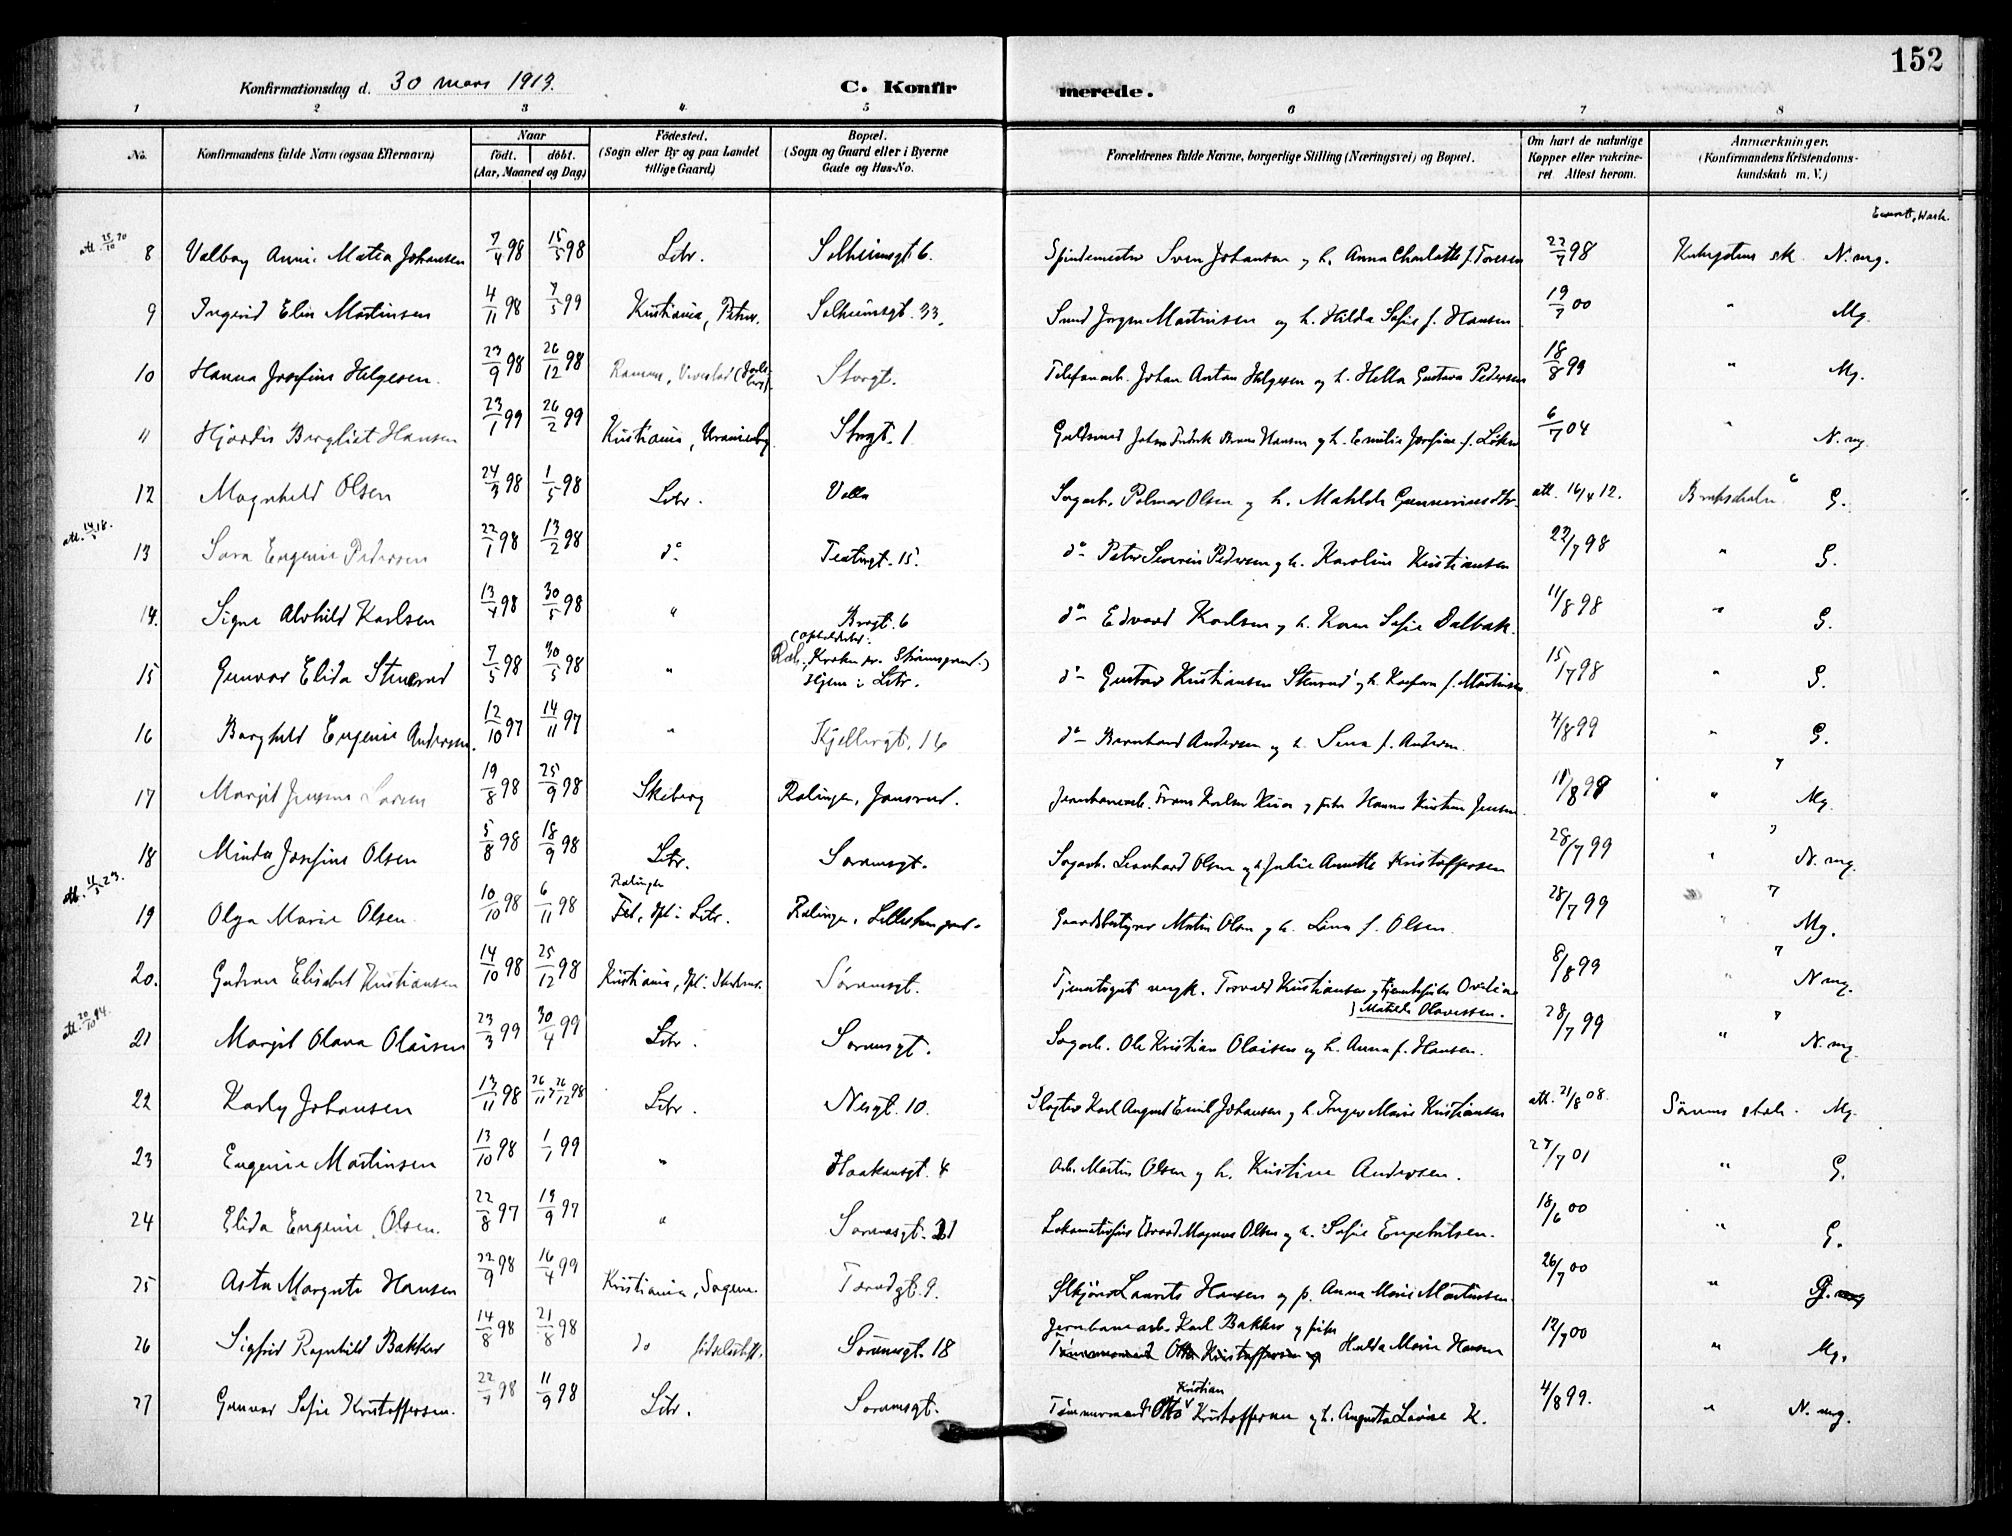 152
Konfirmationsdag d. 30 mars 1913. C. Konfirmerede.
1 2 3 4 5 6 7 8
No. Konfirmandens fulde Navn (ogsaa Efternavn) Naar født. døbt. (Aar, Maaned og Dag) Fødested. (Sogn eller By og paa Landet tillige Gaard) Bopæl. (Sogn og Gaard eller i Byerne Gade og Hus-No. Forældrenes fulde Navne, borgerlige Stilling (Næringsvei) og Bopæl. Om havt de naturlige Kopper eller vakcineret. Attest herom. Anmærkninger. (Konfirmandens Kristendomskundskab m. V.)
att. 25/10 20
8 Valborg Anni Matea Johansen 7/4 98 15/5 98 Lstr. Solheimsgt. 6. Spindemester Sven Johansen og h. Anna Charlotte f. Toresen 22/7 98 sk. N. mg.
9 Ingrid Elin Martinsen 4/11 98 7/5 99 Kristiania, Petrus. Solheimsgt. 33. Smed Jørgen Martinsen og h. Hilda Sofie f. Hansen 19/7 00 " Mg.
10 Hanna Josefine Helgesen. 23/9 98 26/12 98 Ramnes, Storgt. Telefonarb. Johan Anton Helgesen og h. Helle Gustava Pedersen 18/8 99 " Mg.
11 Hjørdis Bergliot Hansen 23/1 99 26/2 99 Kristiania, Uranienborg Storgt. 1 Guldsmed Johan Fredrik Hansen og h. Emilie Josefine f. Løken 6/7 04 " N. mg.
12 Magnhild Olsen 24/3 98 1/5 98 Lstr. Volla Sagarb. Palmar Olsen og h. Mathilde Gunneriusdtr. att. 16/4 12. G.
att. 14/5 18.
13 Sara Eugenie Pedersen 22/1 98 13/2 98 do Teatergt. 15. do Peter Severin Pedersen og h. Karoline Kristiansen 22/7 98 " G.
14. Signe Alvhild Karlsen 13/4 98 30/5 98 " Brogt. 6 do Edvard Karlsen og h. Karen Sofie Dalbak. 11/8 98 " G.
15 Gunvor Elida Stensrud 7/5 98 30/5 98 " (Opholdsted: Ral., Kroken pr. Strømsgrend.) Hjem i Lstr. do Gustav Kristiansen Stensrud og h. f. Martinsen 15/7 98 " G.
16 Borghild Eugenie Andersen. 12/10 97 14/11 97 " Kjellergt. 16 do Bernhard Andersen og h. Lena f. Andersen. 4/8 99 " G.
17 Margit Jensine Larsen 19/8 98 25/9 98 Skiberg Rælingen, Jonsrud. Jernbanearb. Frans Karlsen og pike Hanna Kristine Jensen 18/8 98 " Mg.
18 Minda Josefine Olsen 5/8 98 18/9 98 Lstr. Sørumsgt. Sagarb. Leonhard Olsen og h. Julie Annette Kristoffersen 28/7 99 " N. mg.
att. 11/5 23.
19 Olga Marie Olsen. 10/10 98 6/11 98 Rælingen Fet, dpt. i Lstr. Rælingen, Gaardsbestyrer Martin Olsen og h. Lina f. Olsen. 28/7 99 " Mg.
20. Gudrun Elisabet Kristiansen 14/10 98 25/12 98 Kristiania, dpt. i Sørumsgt. Tjenestegut ungk. Torvald Kristiansen og tjenestepike Oveline Matilde Olavessen. 8/8 99 " N mg.
att. 20/10 94.
21 Margit Olava Olaisen 23/3 99 30/4 99 Lstr. Sørumsgt. Sagarb. Ole Kristian Olaisen og h. Anna f. Hansen. 28/7 99 " N. mg.
22 Karly Johansen 13/11 98 26/11 26/12 98 Lstr. Nesgt. 10. Slagter Karl August Emil Johansen og h. Inger Marie Kristiansen att. 21/8 08. Sørums skole. Mg.
23 Eugenie Martinsen 13/10 98 1/1 99 " Haakansgt. 4 Arb. Martin Olsen og h. Kristine Andersen. 27/7 01 " G.
24 Elida Eugenie Olsen. 22/8 97 19/9 97 " Sørumsgt. 21 Lokomotivfyrb. Edvard Magnus Olsen og h. Sofie Engebretsen. 18/6 00 " G.
25 Asta Margrete Hansen 22/9 98 16/4 99 Kristiania, Sagene. Torvdgt. 9. Laurits Hansen og p. Anna Marie Martinsen. 26/7 00 " G.
26 Sigfrid Ragnhild Bakker 14/8 98 21/8 98 do fødselsstift. Sørumsgt. 18 Jernbanearb. Karl Bakker og pike Tømmermand Otto Kristoffersen og Hulda Marie Hansen 12/7 00 " Mg.
27 Gunvor Sofie Kristoffersen. 22/7 98 11/9 98 Lstr. Sørumsgt. Tømmermand Otto Kristian Kristoffersen og h. Augusta Lovise K. 4/8 99. " N. mg.